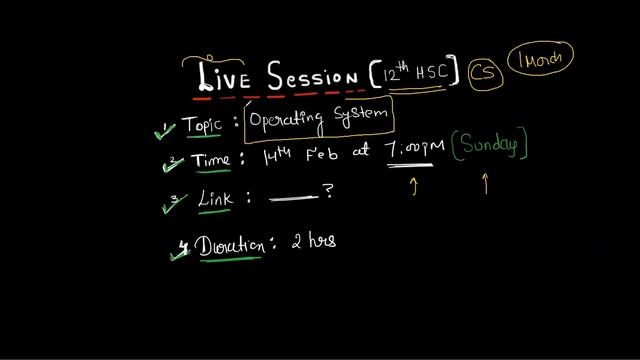 LIVE SESSION [12th HSC] CS 1 March
1 Topic : Operating System
2 Time : 14th Feb at 7:00PM [Sunday]
3 Link : ____ ?
4 Duration : 2 hrs